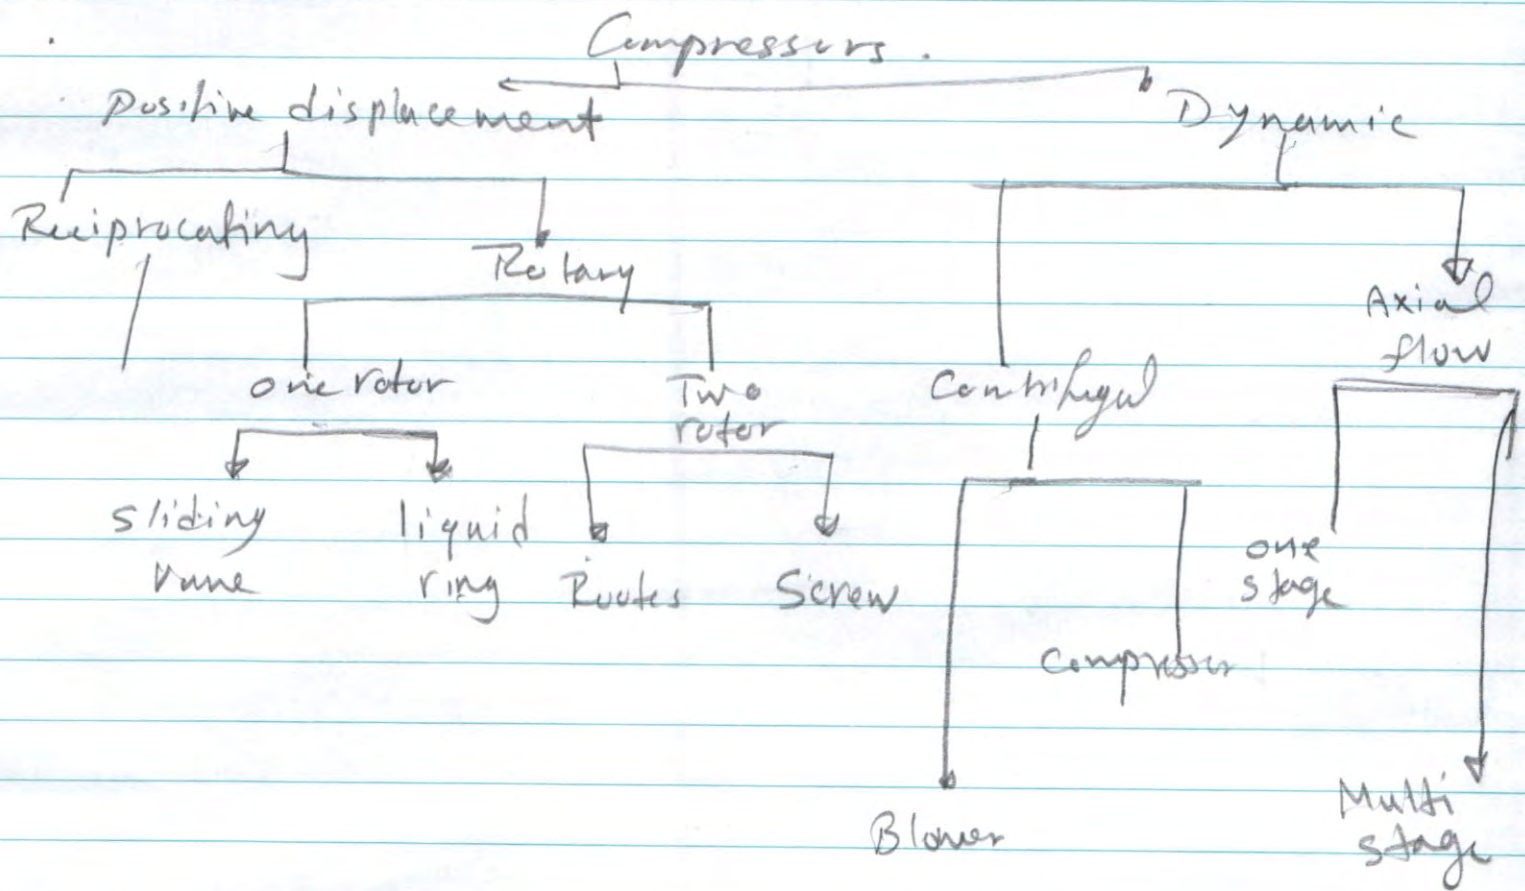 Compressors.
Positive displacement
Dynamic
Reciprocating
Rotary
Axial
flow
one rotor
Two
rotor
Centrifugal
sliding
vane
liquid
ring
Rootes
Screw
one
stage
Compressor
Blower
Multi
stage